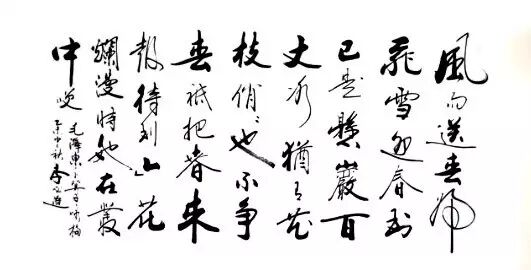 風雨送春歸
飛雪迎春到
已是懸巖百
丈冰猶有花
枝俏〻也不爭
春祇把春來
報待到山花
爛漫時她在叢
中咲
毛澤東卜算子咏梅
中秋李